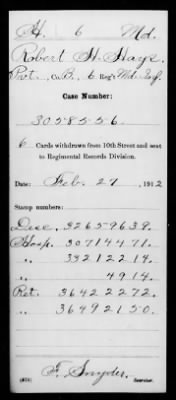 H. 6 Md.
Robert H. Hays.
Pvt., Co. B., 6 Reg't Md. Inf.
Case Number:
3058556
6 Cards withdrawn from 10th Street and sent
to Regimental Records Division.
Date: Feb. 27, 1912
Stamp numbers:
Desc. 32659639.
Hosp. 30714471.
" 33212214.
" 4914.
Ret. 36422272.
" 36492150.
F. Snyder.
Searcher.